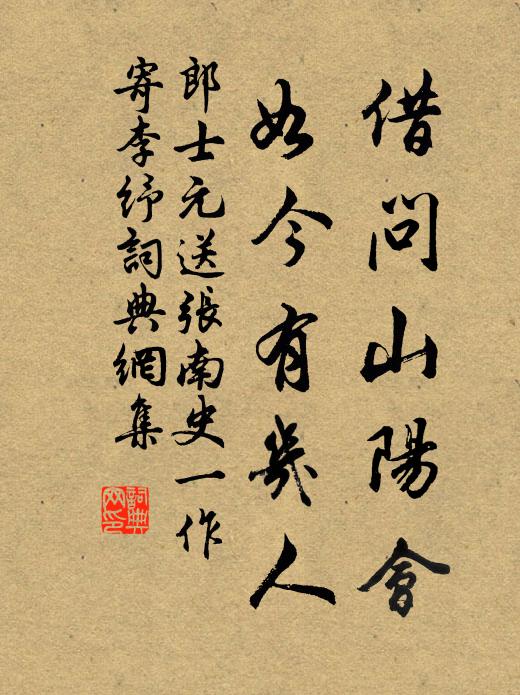 借問山陽會
如今有幾人
郎士元送張南史一作
寄李紓詞典網集
詞典
网印